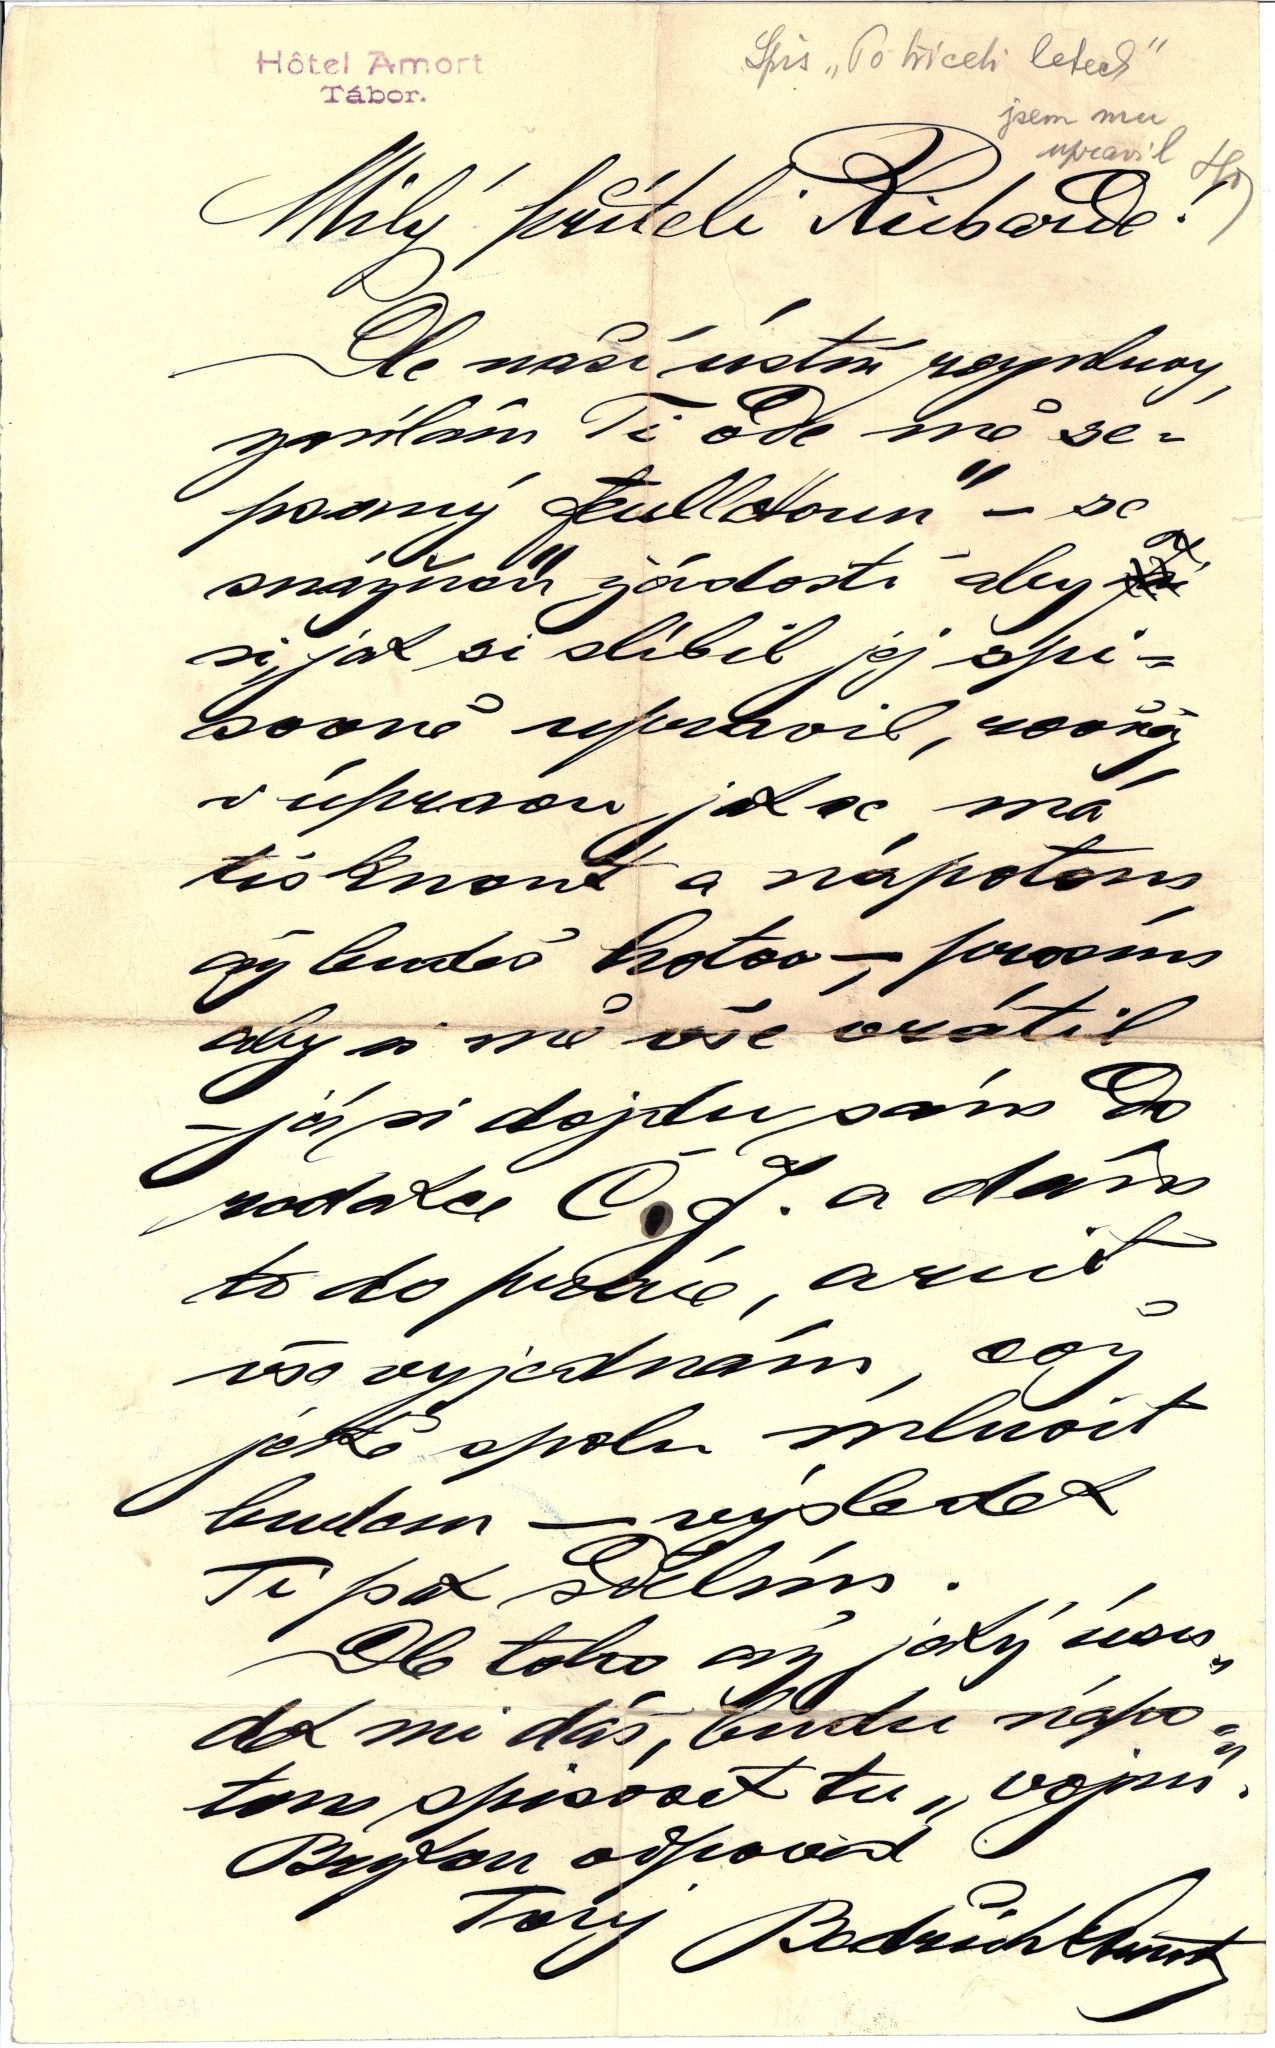 Hôtel Amort
Tábor.
Spis „Po třiceti letech"
jsem mu
upravil
Milý příteli Richarde!
Dle naší ústní rozmluvy,
zasílám Ti zde mě se-
psaný – se
snážnou žádostí aby
si, jak si slíbil jej spi-
sovně upravil,
v úpravu jak se má
tisknout a nápotom,
až budeš hotov –, prosím
aby si mě vše vrátil
– já si dojdu sám do
redakce Č. J. a dám
to do práce, a
vše vyjednám, až
ještě spolu mluvit
budem – výsledek
Ti pak sdělím.
Dle toho až jaký úsu-
dek mi dáš, budu nápo-
tom spisovat tu „vojnu".
Brzkou odpověd
Tvůj Bedřich Amort